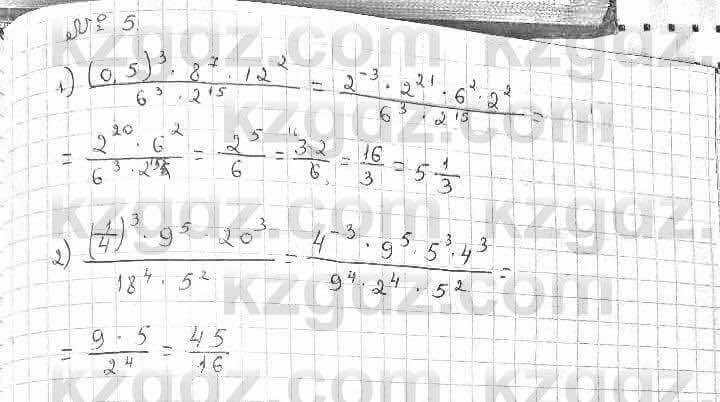 № 5.
1) (0,5)³ · 8⁷ · 12² / 6³ · 2¹⁵ = 2⁻³ · 2²¹ · 6² · 2² / 6³ · 2¹⁵ =
= 2²⁰ · 6² / 6³ · 2¹⁵ = 2⁵ / 6 = 32 / 6 = 16 / 3 = 5 1/3
2) (1/4)³ · 9⁵ · 20³ / 18⁴ · 5² = 4⁻³ · 9⁵ · 5³ · 4³ / 9⁴ · 2⁴ · 5² =
= 9 · 5 / 2⁴ = 45 / 16
kzgdz.com
kzgdz.com
kzgdz.com
kzgdz.com
kzgdz.com